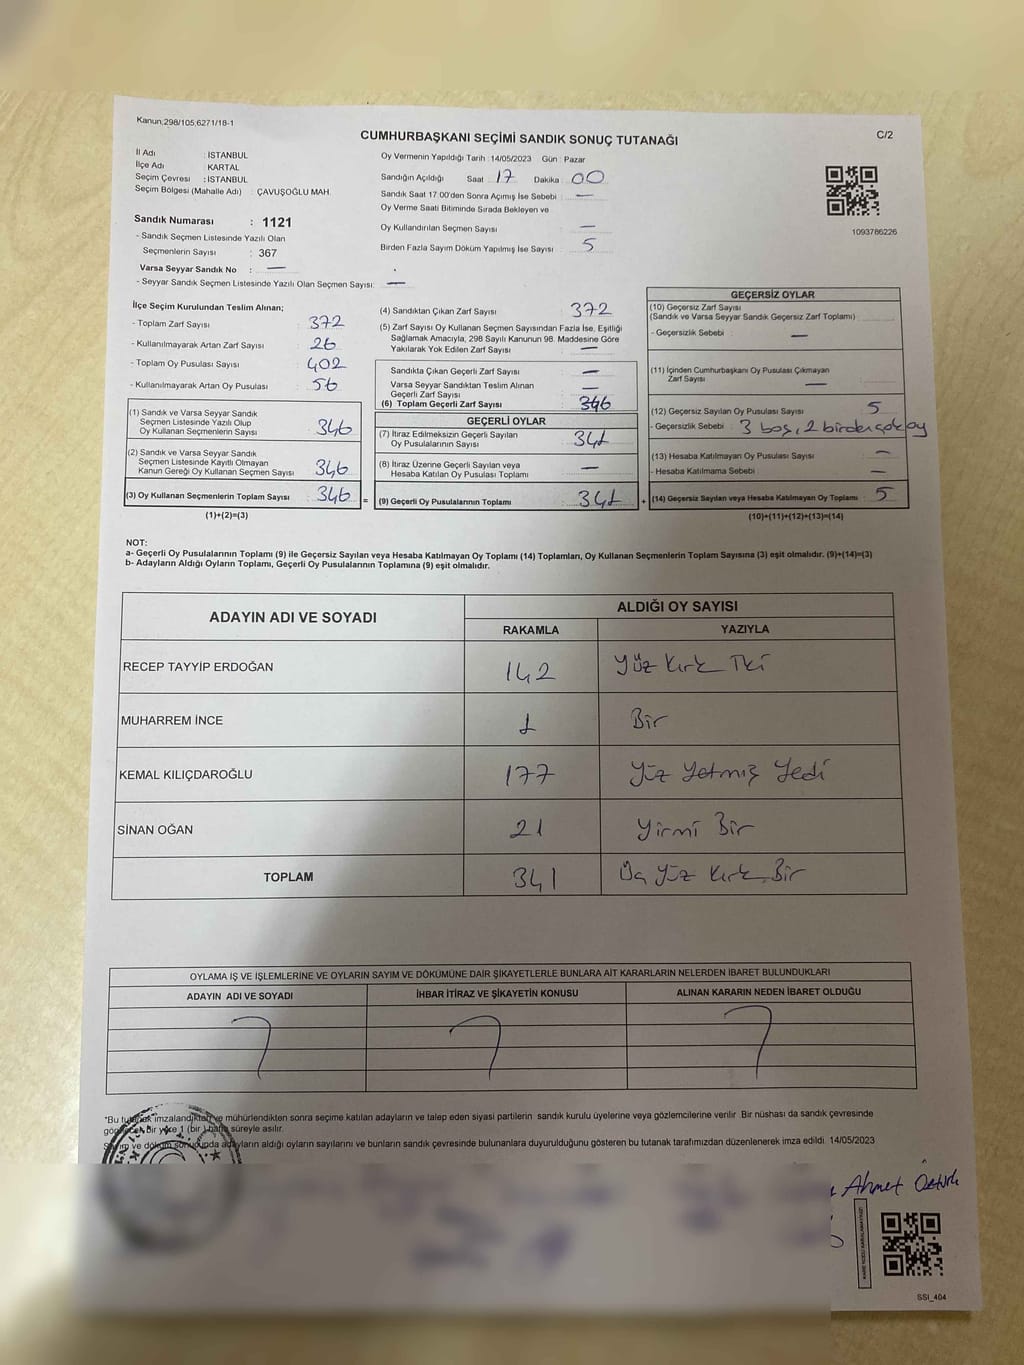 Kanun;298/105,6271/18-1
C/2
CUMHURBAŞKANI SEÇİMİ SANDIK SONUÇ TUTANAĞI
İl Adı : İSTANBUL
İlçe Adı : KARTAL
Seçim Çevresi : İSTANBUL
Seçim Bölgesi (Mahalle Adı) : ÇAVUŞOĞLU MAH.
Sandık Numarası : 1121
- Sandık Seçmen Listesinde Yazılı Olan
Seçmenlerin Sayısı : 367
Varsa Seyyar Sandık No : —
- Seyyar Sandık Seçmen Listesinde Yazılı Olan Seçmen Sayısı: —
Oy Vermenin Yapıldığı Tarih : 14/05/2023 Gün : Pazar
Sandığın Açıldığı Saat 17 Dakika 00
Sandık Saat 17:00'den Sonra Açımış İse Sebebi : —
Oy Verme Saati Bitiminde Sırada Bekleyen ve
Oy Kullandırılan Seçmen Sayısı : —
Birden Fazla Sayım Döküm Yapılmış İse Sayısı : 5
1093786226
İlçe Seçim Kurulundan Teslim Alınan;
- Toplam Zarf Sayısı : 372
- Kullanılmayarak Artan Zarf Sayısı : 26
- Toplam Oy Pusulası Sayısı : 402
- Kullanılmayarak Artan Oy Pusulası : 56
(1) Sandık ve Varsa Seyyar Sandık
Seçmen Listesinde Yazılı Olup
Oy Kullanan Seçmenlerin Sayısı : 346
(2) Sandık ve Varsa Seyyar Sandık
Seçmen Listesinde Kayıtlı Olmayan
Kanun Gereği Oy Kullanan Seçmen Sayısı : 346
(3) Oy Kullanan Seçmenlerin Toplam Sayısı : 346 =
(1)+(2)=(3)
(4) Sandıktan Çıkan Zarf Sayısı : 372
(5) Zarf Sayısı Oy Kullanan Seçmen Sayısından Fazla İse, Eşitliği
Sağlamak Amacıyla, 298 Sayılı Kanunun 98. Maddesine Göre
Yakılarak Yok Edilen Zarf Sayısı : —
Sandıkta Çıkan Geçerli Zarf Sayısı : —
Varsa Seyyar Sandıktan Teslim Alınan
Geçerli Zarf Sayısı : —
(6) Toplam Geçerli Zarf Sayısı : 346
GEÇERLİ OYLAR
(7) İtiraz Edilmeksizin Geçerli Sayılan
Oy Pusulasının Sayısı : 341
(8) İtiraz Üzerine Geçerli Sayılan veya
Hesaba Katılan Oy Pusulası Toplamı : —
(9) Geçerli Oy Pusulalarının Toplamı : 341 +
GEÇERSİZ OYLAR
(10) Geçersiz Zarf Sayısı
(Sandık ve Varsa Seyyar Sandık Geçersiz Zarf Toplamı) :
- Geçersizlik Sebebi : —
(11) İçinden Cumhurbaşkanı Oy Pusulası Çıkmayan
Zarf Sayısı : —
(12) Geçersiz Sayılan Oy Pusulası Sayısı : 5
- Geçersizlik Sebebi : 3 boş, 2 birden çok oy
(13) Hesaba Katılmayan Oy Pusulası Sayısı : —
- Hesaba Katılmama Sebebi : —
(14) Geçersiz Sayılan veya Hesaba Katılmayan Oy Toplamı : 5
(10)+(11)+(12)+(13)=(14)
NOT:
a- Geçerli Oy Pusulalarının Toplamı (9) ile Geçersiz Sayılan veya Hesaba Katılmayan Oy Toplamı (14) Toplamları, Oy Kullanan Seçmenlerin Toplam Sayısına (3) eşit olmalıdır. (9)+(14)=(3)
b- Adayların Aldığı Oyların Toplamı, Geçerli Oy Pusulalarının Toplamına (9) eşit olmalıdır.
ADAYIN ADI VE SOYADI
ALDIĞI OY SAYISI
RAKAMLA YAZIYLA
RECEP TAYYİP ERDOĞAN 142 Yüz Kırk İki
MUHARREM İNCE 1 Bir
KEMAL KILIÇDAROĞLU 177 Yüz Yetmiş Yedi
SİNAN OĞAN 21 Yirmi Bir
TOPLAM 341 Üç Yüz Kırk Bir
OYLAMA İŞ VE İŞLEMLERİNE VE OYLARIN SAYIM VE DÖKÜMÜNE DAİR ŞİKAYETLERLE BUNLARA AİT KARARLARIN NELERDEN İBARET BULUNDUKLARI
ADAYIN ADI VE SOYADI İHBAR İTİRAZ VE ŞİKAYETİN KONUSU ALINAN KARARIN NEDEN İBARET OLDUĞU
*Bu tutanak imzalandıktan ve mühürlendikten sonra seçime katılan adayların ve talep eden siyasi partilerin sandık kurulu üyelerine veya gözlemcilerine verilir. Bir nüshası da sandık çevresinde
görülecek bir yere 1 (bir) hafta süreyle asılır.
Sayım ve döküm sonucunda adayların aldığı oyların sayılarını ve bunların sandık çevresinde bulunanlara duyurulduğunu gösteren bu tutanak tarafımızdan düzenlenerek imza edildi. 14/05/2023
Ahmet Öztürk
KARE KODU KARALAMAYINIZ!
SSI_404